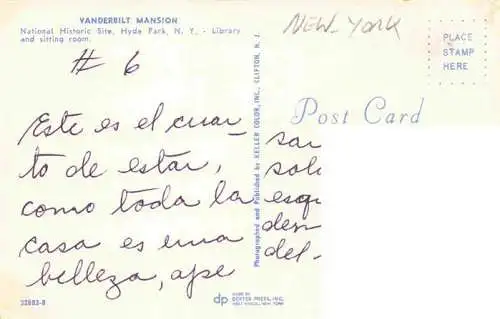 VANDERBILT MANSION
National Historic Site, Hyde Park, N. Y. - Library
and sitting room.
NEW-YORK
PLACE
STAMP
HERE
# 6
Post Card
Este es el cuar-
to de estar,
como toda la
casa es una
belleza, ape
sar
sol
esqu
den
del-
Photographed and Published by KELLER COLOR, INC., CLIFTON, N. J.
32883-B
dp
MADE BY
DEXTER PRESS, INC.
WEST NYACK, NEW YORK